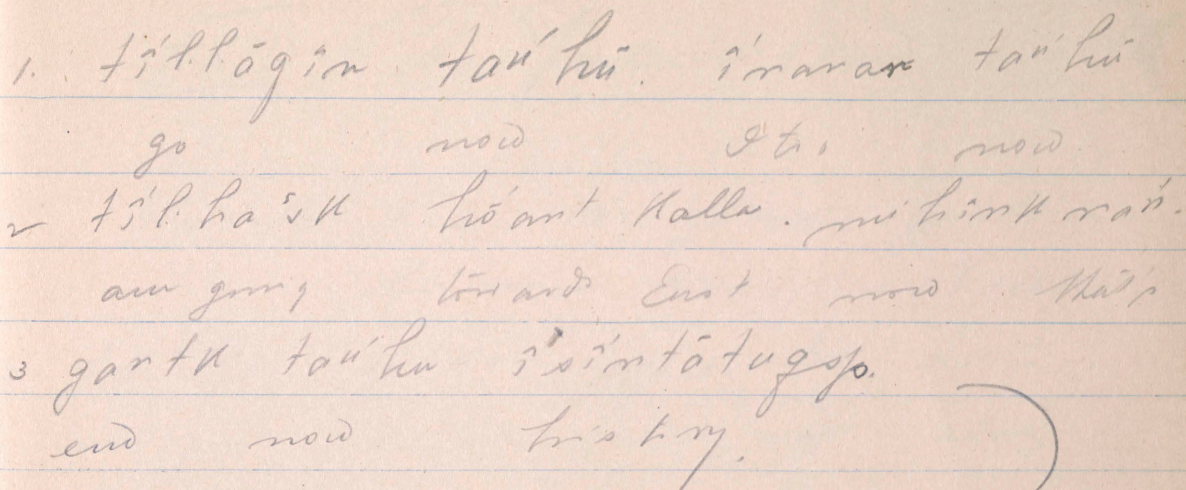 1. tîl.lāgîn taú hū. înaran taú hū
go now I to. now
2 tîl.haˢvk hóant Kalla. mihînk naú.
am going towards East now that's
3 gantk taú hu îsîntātugsp.
end now history.